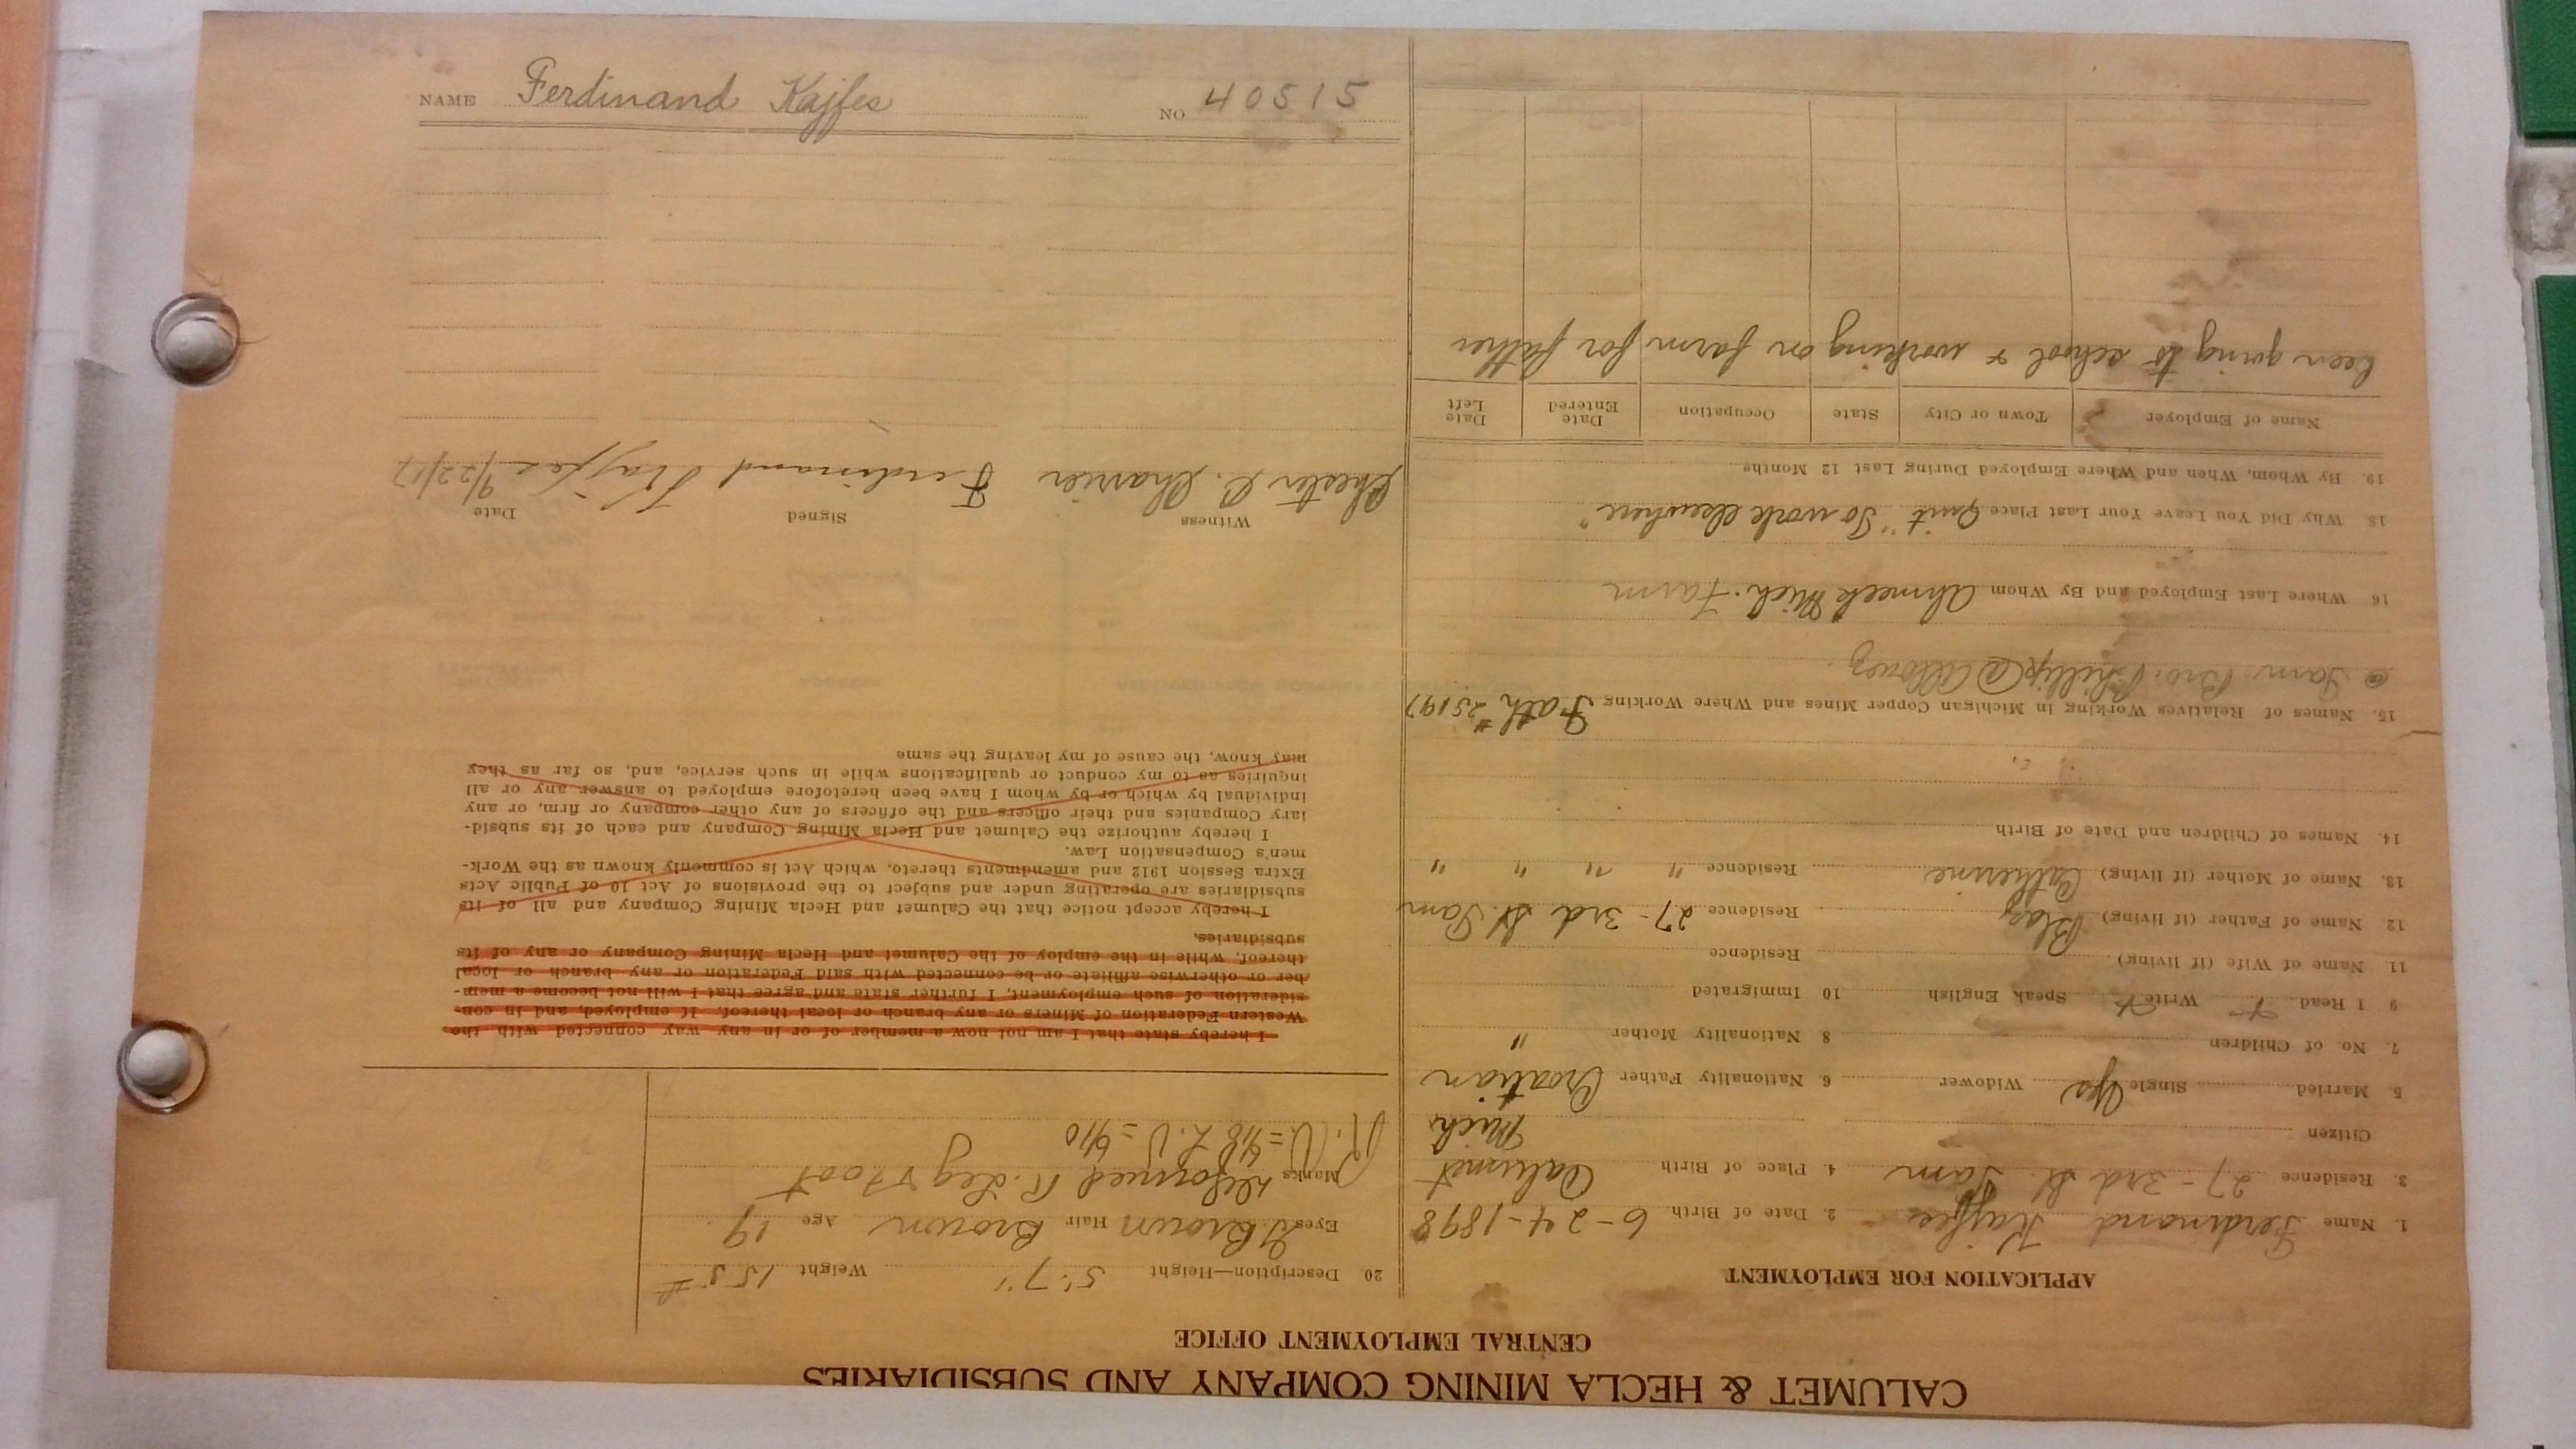 CALUMET & HECLA MINING COMPANY AND SUBSIDIARIES
CENTRAL EMPLOYMENT OFFICE
APPLICATION FOR EMPLOYMENT
1. Name Ferdinand Kajfes 2. Date of Birth 6-24-1898
3. Residence 27-3rd St. Tam 4. Place of Birth Calumet
Citizen Mich
5 Married Single Yes Widower 6. Nationality Father Croatian
7. No. of Children 8 Nationality Mother "
9 I Read + Write + Speak English 10 Immigrated
11. Name of Wife (if living) Residence
12 Name of Father (if living) Blaz Residence 27-3rd St. Tam
13. Name of Mother (if living) Catherine Residence " " " "
14. Names of Children and Date of Birth
15. Names of Relatives Working in Michigan Copper Mines and Where Working Fath #25197
@ Tam. Bro. Phillip @ Allouez
16 Where Last Employed and By Whom Ahmeek Mich. Farm
18. Why Did You Leave Your Last Place Quit "To work elsewhere"
19. By Whom, When and Where Employed During Last 12 Months
Name of Employer Town or City State Occupation Date Entered Date Left
been going to school & working on farm for father
20. Description—Height 5'7" Weight 155#
Eyes Brown Hair Brown Age 19
Marks deformed R. Leg & Foot
I hereby state that I am not now a member of or in any way connected with the
Western Federation of Miners or any branch or local thereof. If employed, and in con-
sideration of such employment, I further state and agree that I will not become a mem-
ber or otherwise affiliate or be connected with said Federation or any branch or local
thereof, while in the employ of the Calumet and Hecla Mining Company or any of its
subsidiaries.
I hereby accept notice that the Calumet and Hecla Mining Company and all of its
subsidiaries are operating under and subject to the provisions of Act 10 of Public Acts
Extra Session 1912 and amendments thereto, which Act is commonly known as the Work-
men's Compensation Law.
I hereby authorize the Calumet and Hecla Mining Company and each of its subsid-
iary Companies and their officers and the officers of any other company or firm, or any
individual by which or by whom I have been heretofore employed to answer any or all
inquiries as to my conduct or qualifications while in such service, and, so far as they
may know, the cause of my leaving the same
Witness Signed Date
Chester C. Ferdinand Kajfes 9/22/17
NAME Ferdinand Kajfes NO 40515